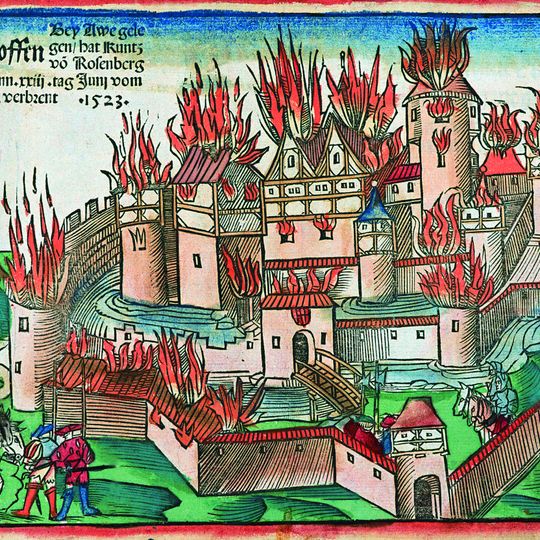 Bey Awe gele
offen gen/ hat Kuntz
võ Rosenberg
nn. xxiii .tag Junj vom
verbrent ·1523·